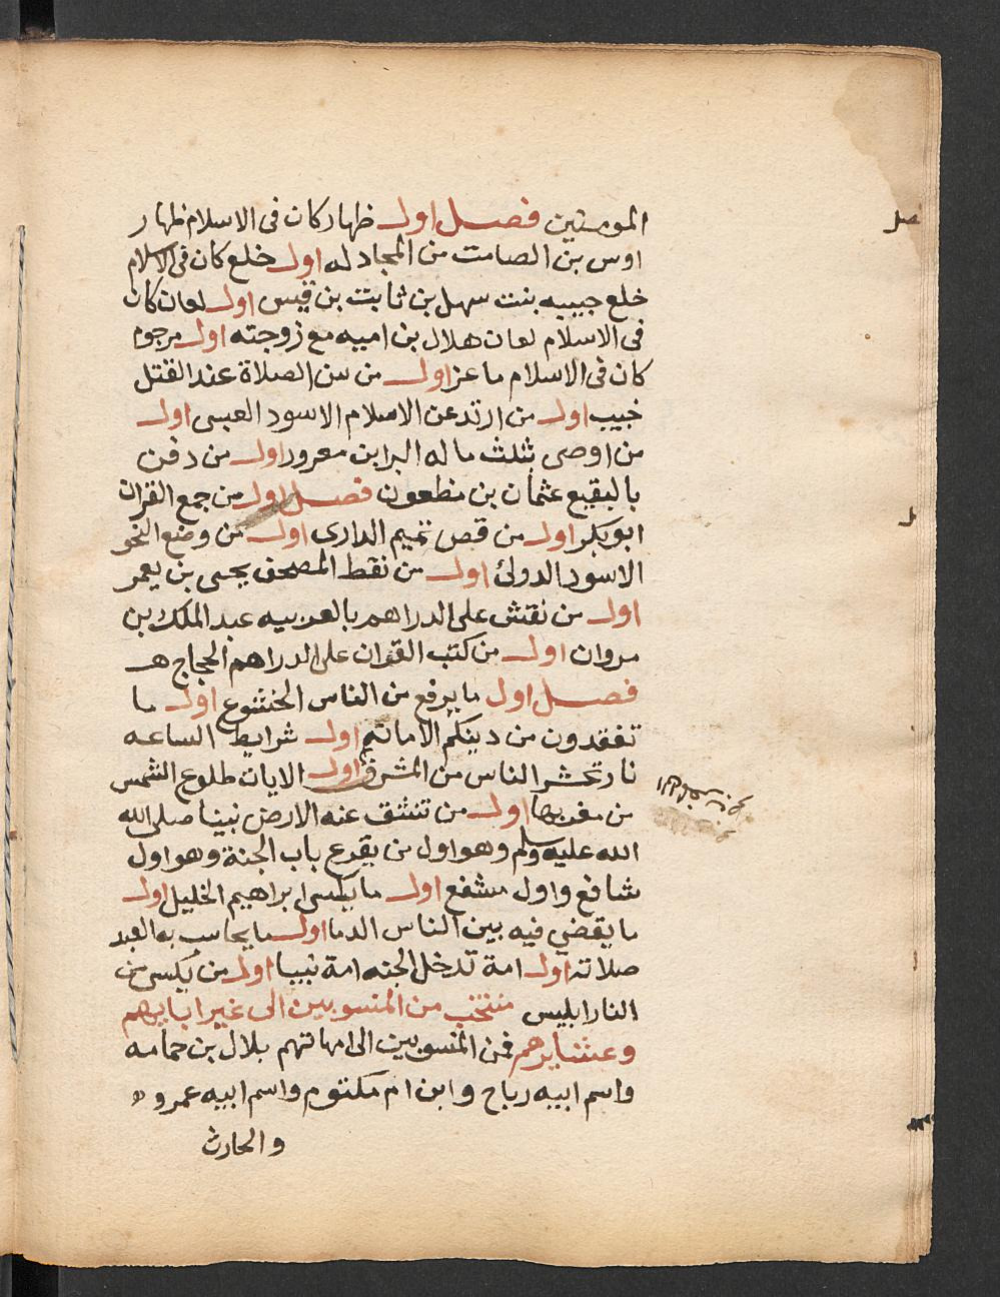 المومنين فصل اول ظهار كان فى الاسلام ظهار
اوس بن الصامت من المجادله اول خلع كان فى الاسلام
خلع حبيبه بنت سهل بن ثابت بن قيس اول لعان كان
فى الاسلام لعان هلال بن اميه مع زوجته اول مرجوم
كان فى الاسلام ماعز اول من سن الصلاة عند القتل
خبيب اول من ارتد عن الاسلام الاسود العبسى اول
من اوصى بثلث ماله البرا بن معرور اول من دفن
بالبقيع عثمان بن مظعون فصل اول من جمع القران
ابو بكر اول من قص تميم الدارى اول من وضع النحو
الاسود الدولئ اول من نقط المصحف يحيى بن يعمر
اول من نقش على الدراهم بالعربيه عبد الملك بن
مروان اول من كتب القران على الدراهم الحجاج هـ
فصل اول ما يرفع من الناس الخشوع اول ما
تفقدون من دينكم الامانه اول شرايط الساعه
نار تحشر الناس من المشرق اول الايات طلوع الشمس
من مغربها اول من تنشق عنه الارض نبينا صلى الله
الله عليه وسلم وهو اول من يقرع باب الجنة وهو اول
شافع واول مشفع اول ما يكسى ابراهيم الخليل اول
ما يقضي فيه بين الناس الدما اول ما يحاسب به العبد
صلاته اول امة تدخل الجنه امة نبينا اول من يكسى من
النار ابليس منتخب من المنسوبين الى غير ابايهم
وعشايرهم فمن المنسوبين الى امهاتهم بلال بن حمامه
واسم ابيه رباح وابن ام مكتوم واسم ابيه عمرو
والحارث